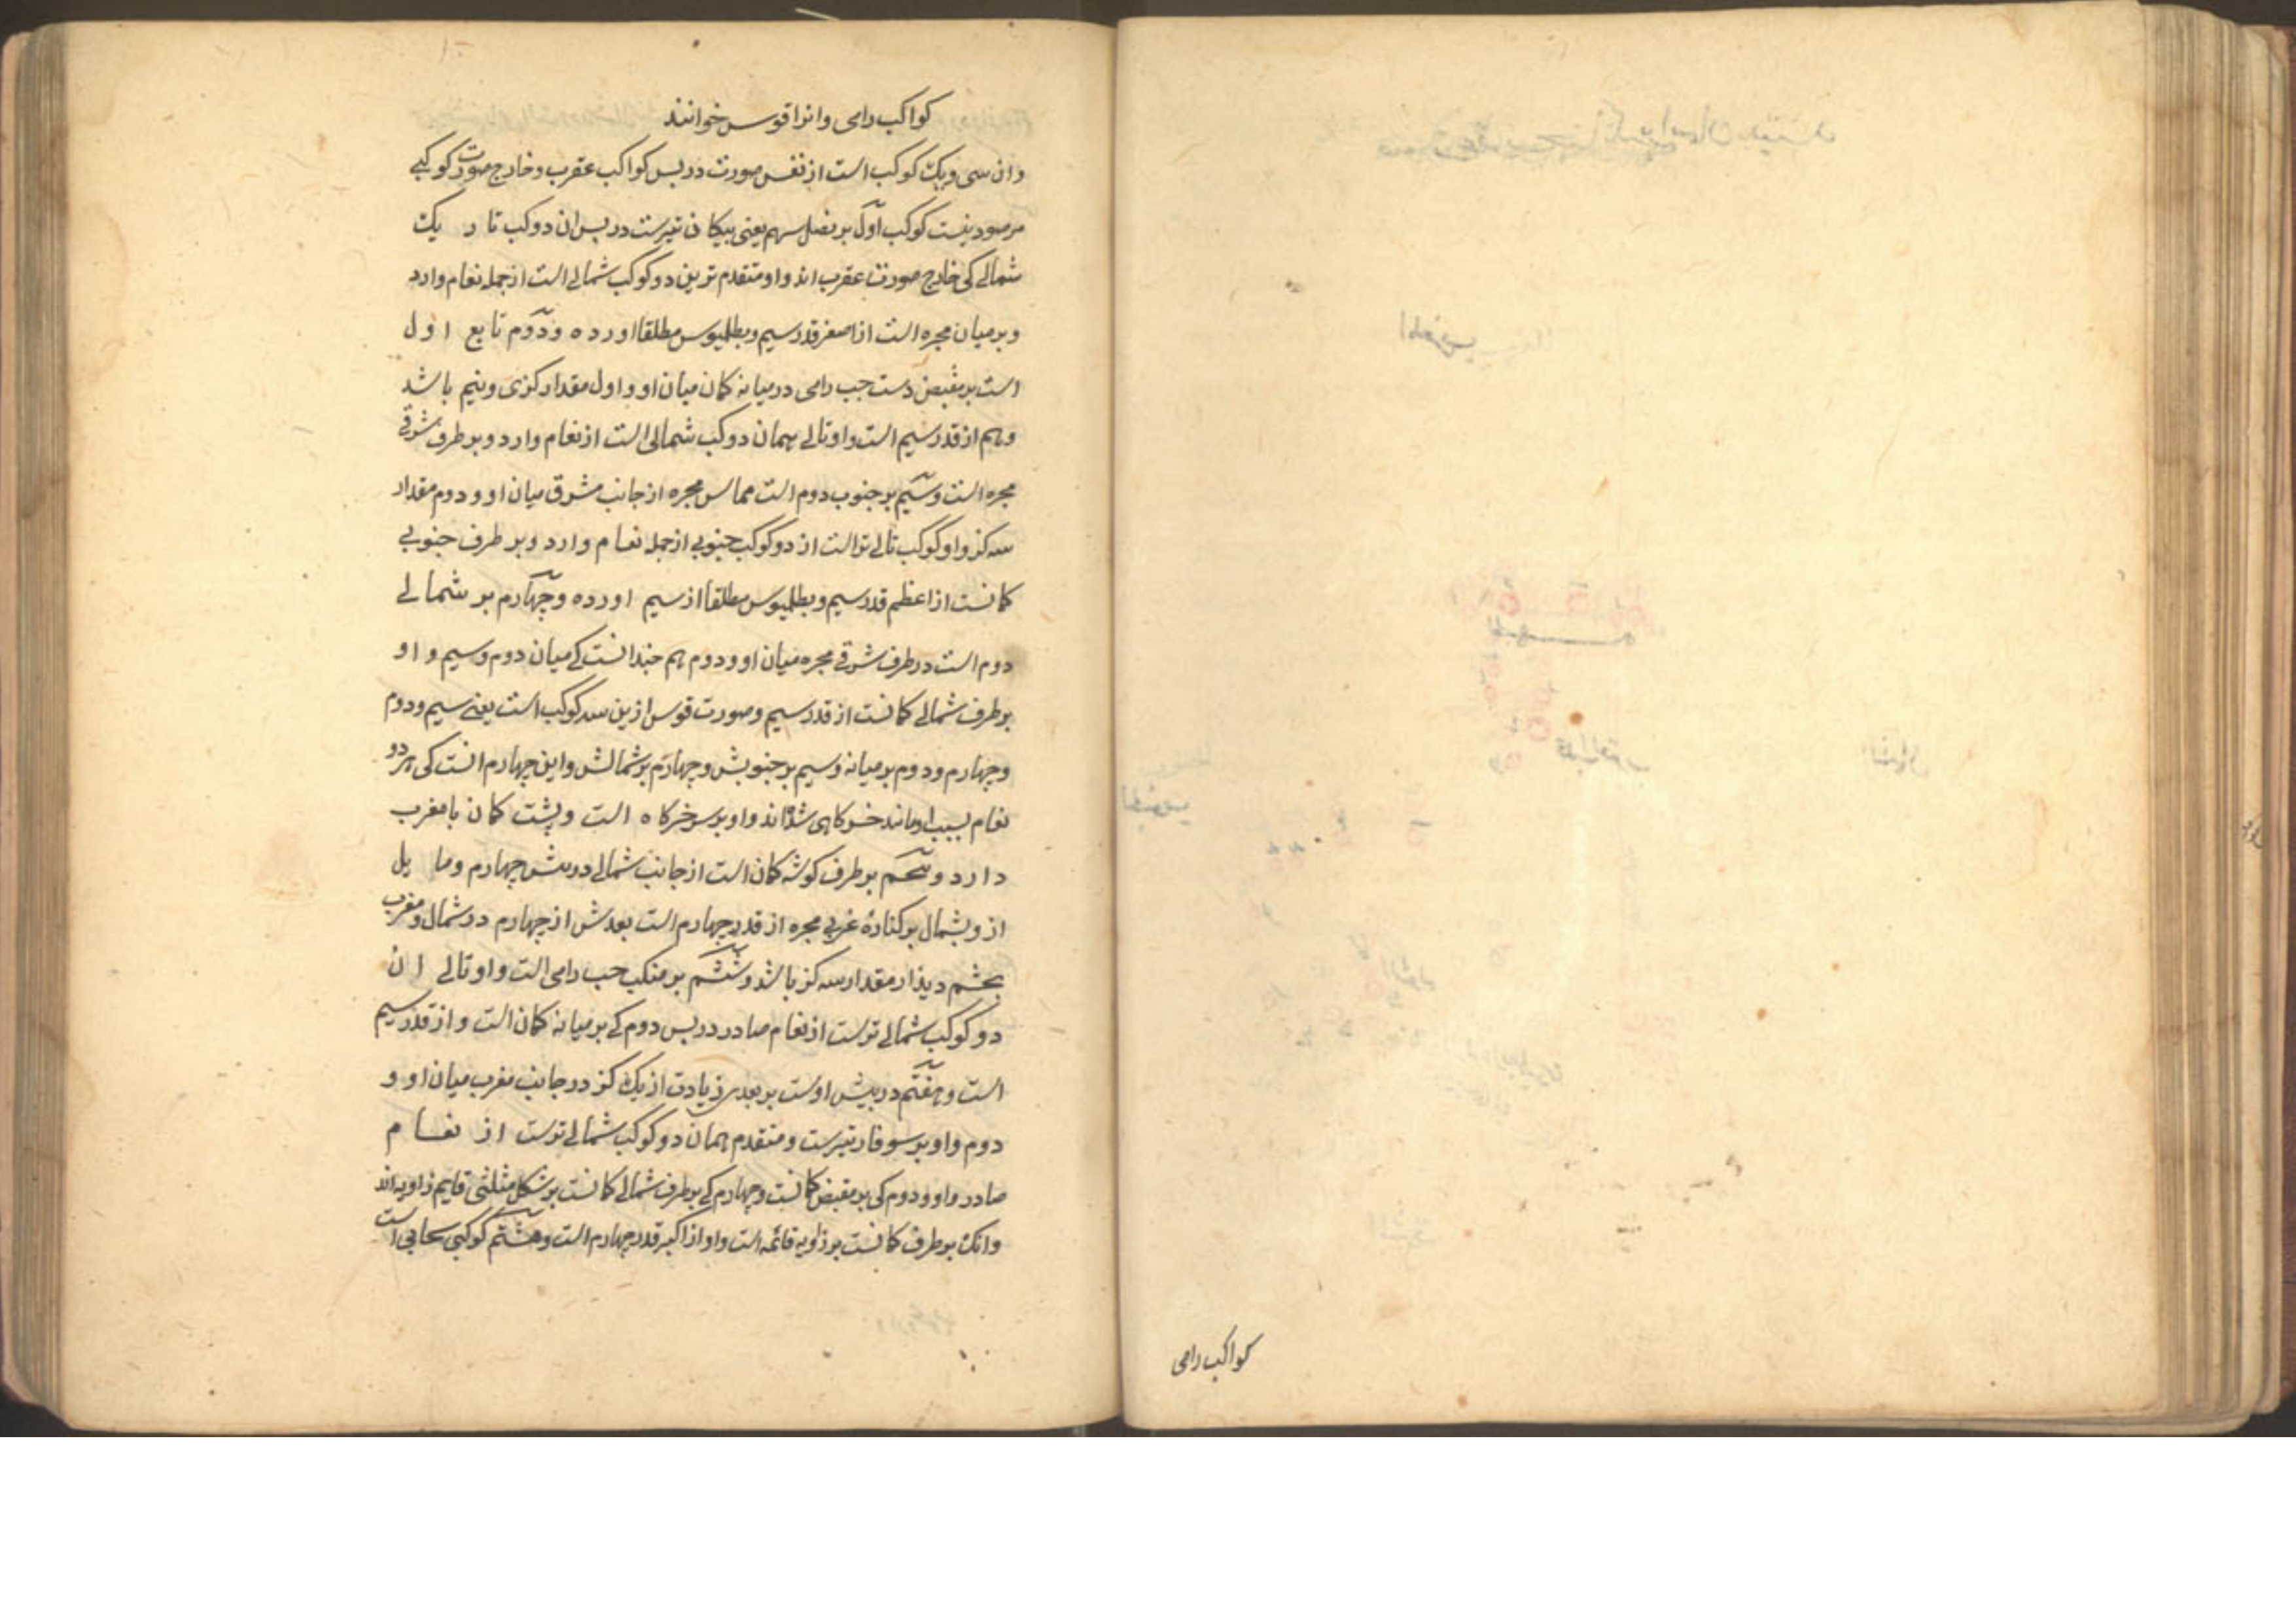 كواكب رامى
كواكب رامى وانرا قوس خوانند
وان سى ويك كوكب است از نفس صورت در پس كواكب عقرب و خارج صورت كوكبى
مرصود نيست كوكب اول بر نصل سهم يعنى پيكان تيرست در پس ان دو كب تاريك
شمالى كى خارج صورت عقرب اند و او متقدم ترين دو كوكب شمالى است از جمله نعام وارد
و بر ميان مجره است از اصغر قدر سيم و بطلميوس مطلقا اورده و دوم تابع اول
است بر مقبض دست چپ رامى در ميانه كمان ميان او و اول مقدار كزى و نيم باشد
و هم از قدر سيم است و او تالى همان دو كب شمالى است از نعام وارد و بر طرف شرقى
مجره است و سيم بر جنوب دوم است مماس مجره از جانب مشرق ميان او و دوم مقدار
سه كز و او كوكب تالى تراست از دو كوكب جنوبى از جمله نعام وارد و بر طرف جنوبى
كمانست از اعظم قدر سيم و بطلميوس مطلقا از سيم اورده و چهارم بر شمالى
دوم است در طرف شرقى مجره ميان او و دوم هم چندانست كى ميان دوم و سيم و او
بر طرف شمالى كمانست از قدر سيم و صورت قوس ازين سه كوكب است يعنى سيم و دوم
و چهارم و دوم بر ميانه و سيم بر جنوبش و چهارم بر شمالش و اين چهارم انست كى هر دو
نعام بسبب او مانند خركاهى شده اند و او بر سر خركاه است و پشت كمان با مغرب
دارد و پنجم بر طرف كوشه كمان است از جانب شمالى در پيش چهارم و مايل
ازو بشمال بر كناره غربى مجره از قدر چهارم است بعدش از چهارم در شمال و مغرب
بچشم ديدار مقدار سه كز باشد و ششم بر منكب چپ رامى است و او تالى ان
دو كوكب شمالى ترست از نعام صادر در پس دوم كى بر ميانه كمان است و از قدر سيم
است و هفتم در پيش اوست بر بعدى زيادت از يك كز در جانب مغرب ميان او و
دوم و او بر سوفار تيرست و متقدم همان دو كوكب شمالى ترست از نعام
صادر و او و دوم كى بر مقبض كمانست و چهارم كى بر طرف شمالى كمانست بر شكل مثلثى قايم زاويه اند
و انك بر طرف كمانست بر زاويه قائمه است و او از اكبر قدر چهارم است و هشتم كوكبى سحابى است